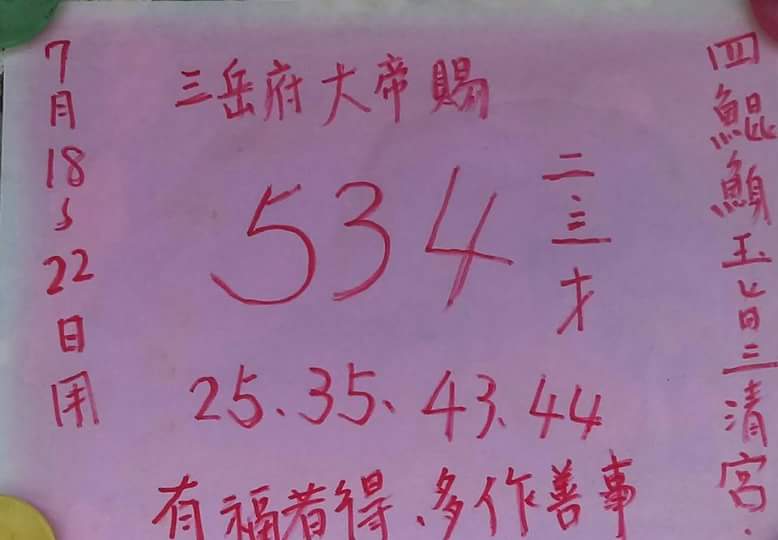 四鯤鯓玉旨三清宮.
三岳府大帝賜
534
二三才
25、35、43、44
有福者得、多作善事
7月18~22日用